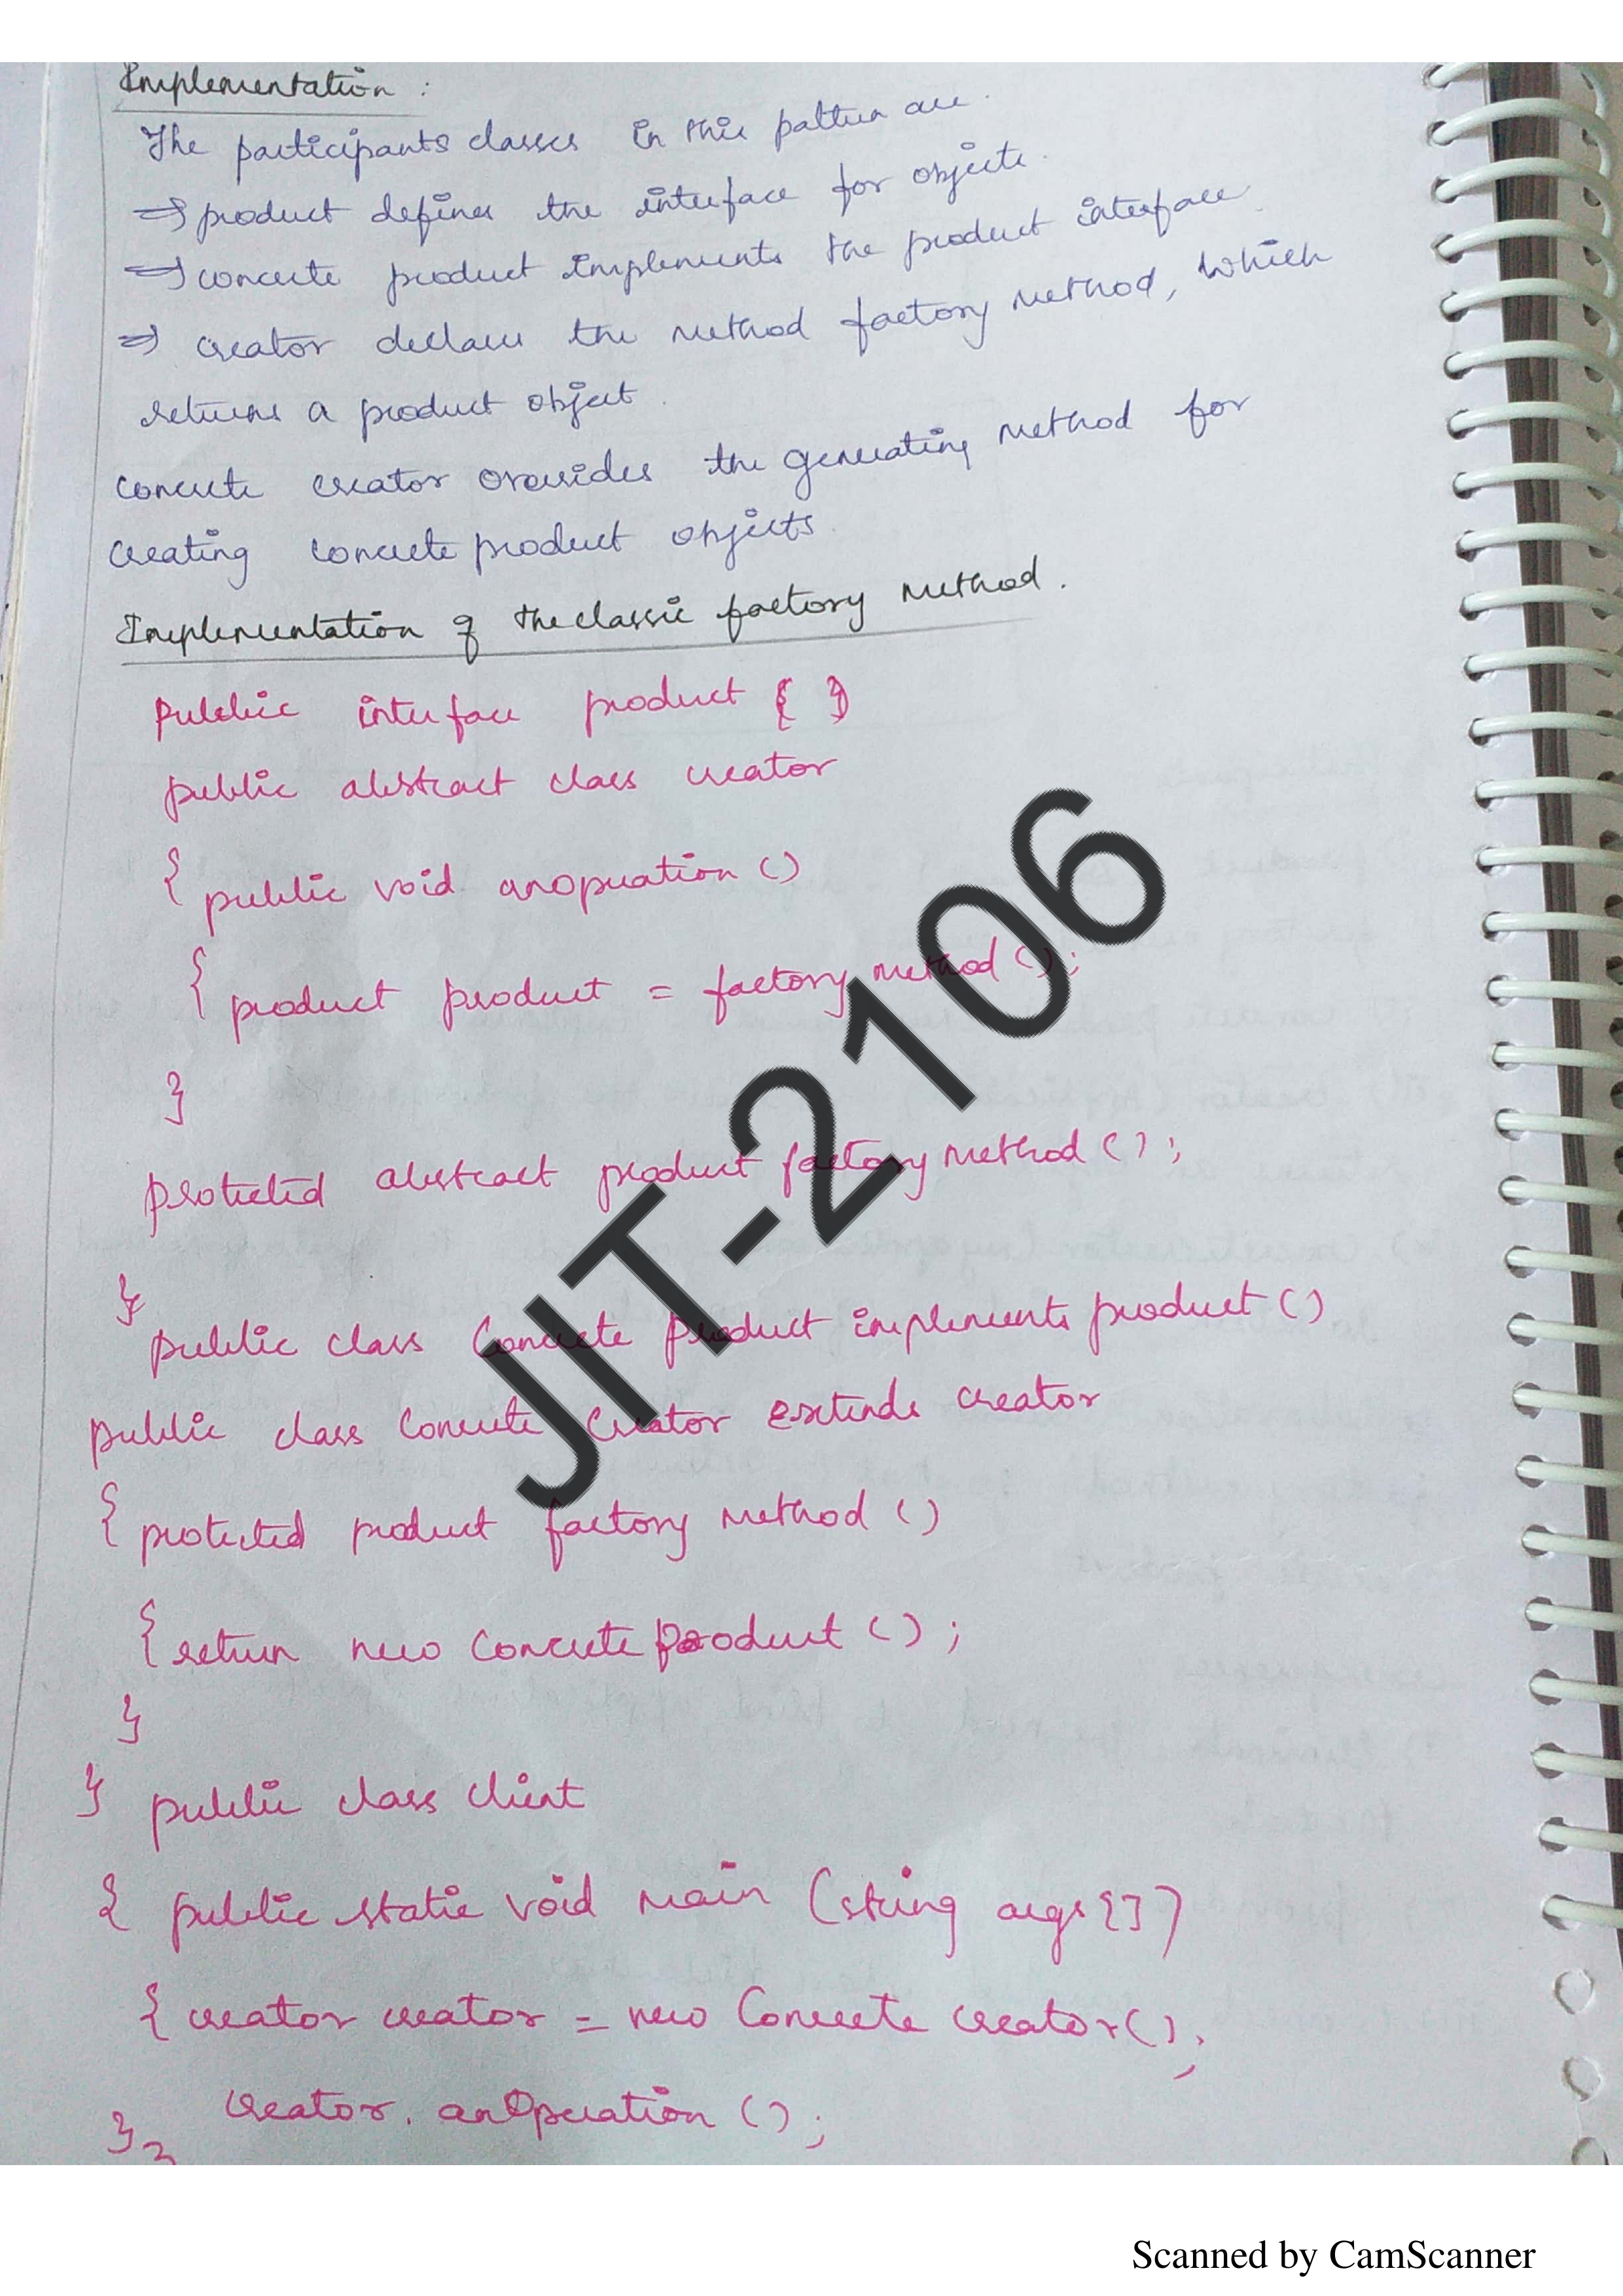 Implementation :
The participants classes in this pattern are.
⇒ product defines the interface for objects.
⇒ concrete product implements the product interface.
⇒ creator declare the method factory method, which
returns a product object.
concrete creator overrides the generating method for
creating concrete product objects.
Implementation of the classic factory method.
Public interface product { }
public abstract class creator
{ public void anoperation ()
{ product product = factory method ();
}
protected abstract product factory method ();
}
public class Concrete Product implements product ()
public class Concrete Creator extends creator
{ protected product factory method ()
{ return new Concrete Product () ;
}
} public class client
{ public static void main (string args{])
{ creator creator = new Concrete creator();
creator. anOperation () ;
} }
JIT-2106
Scanned by CamScanner